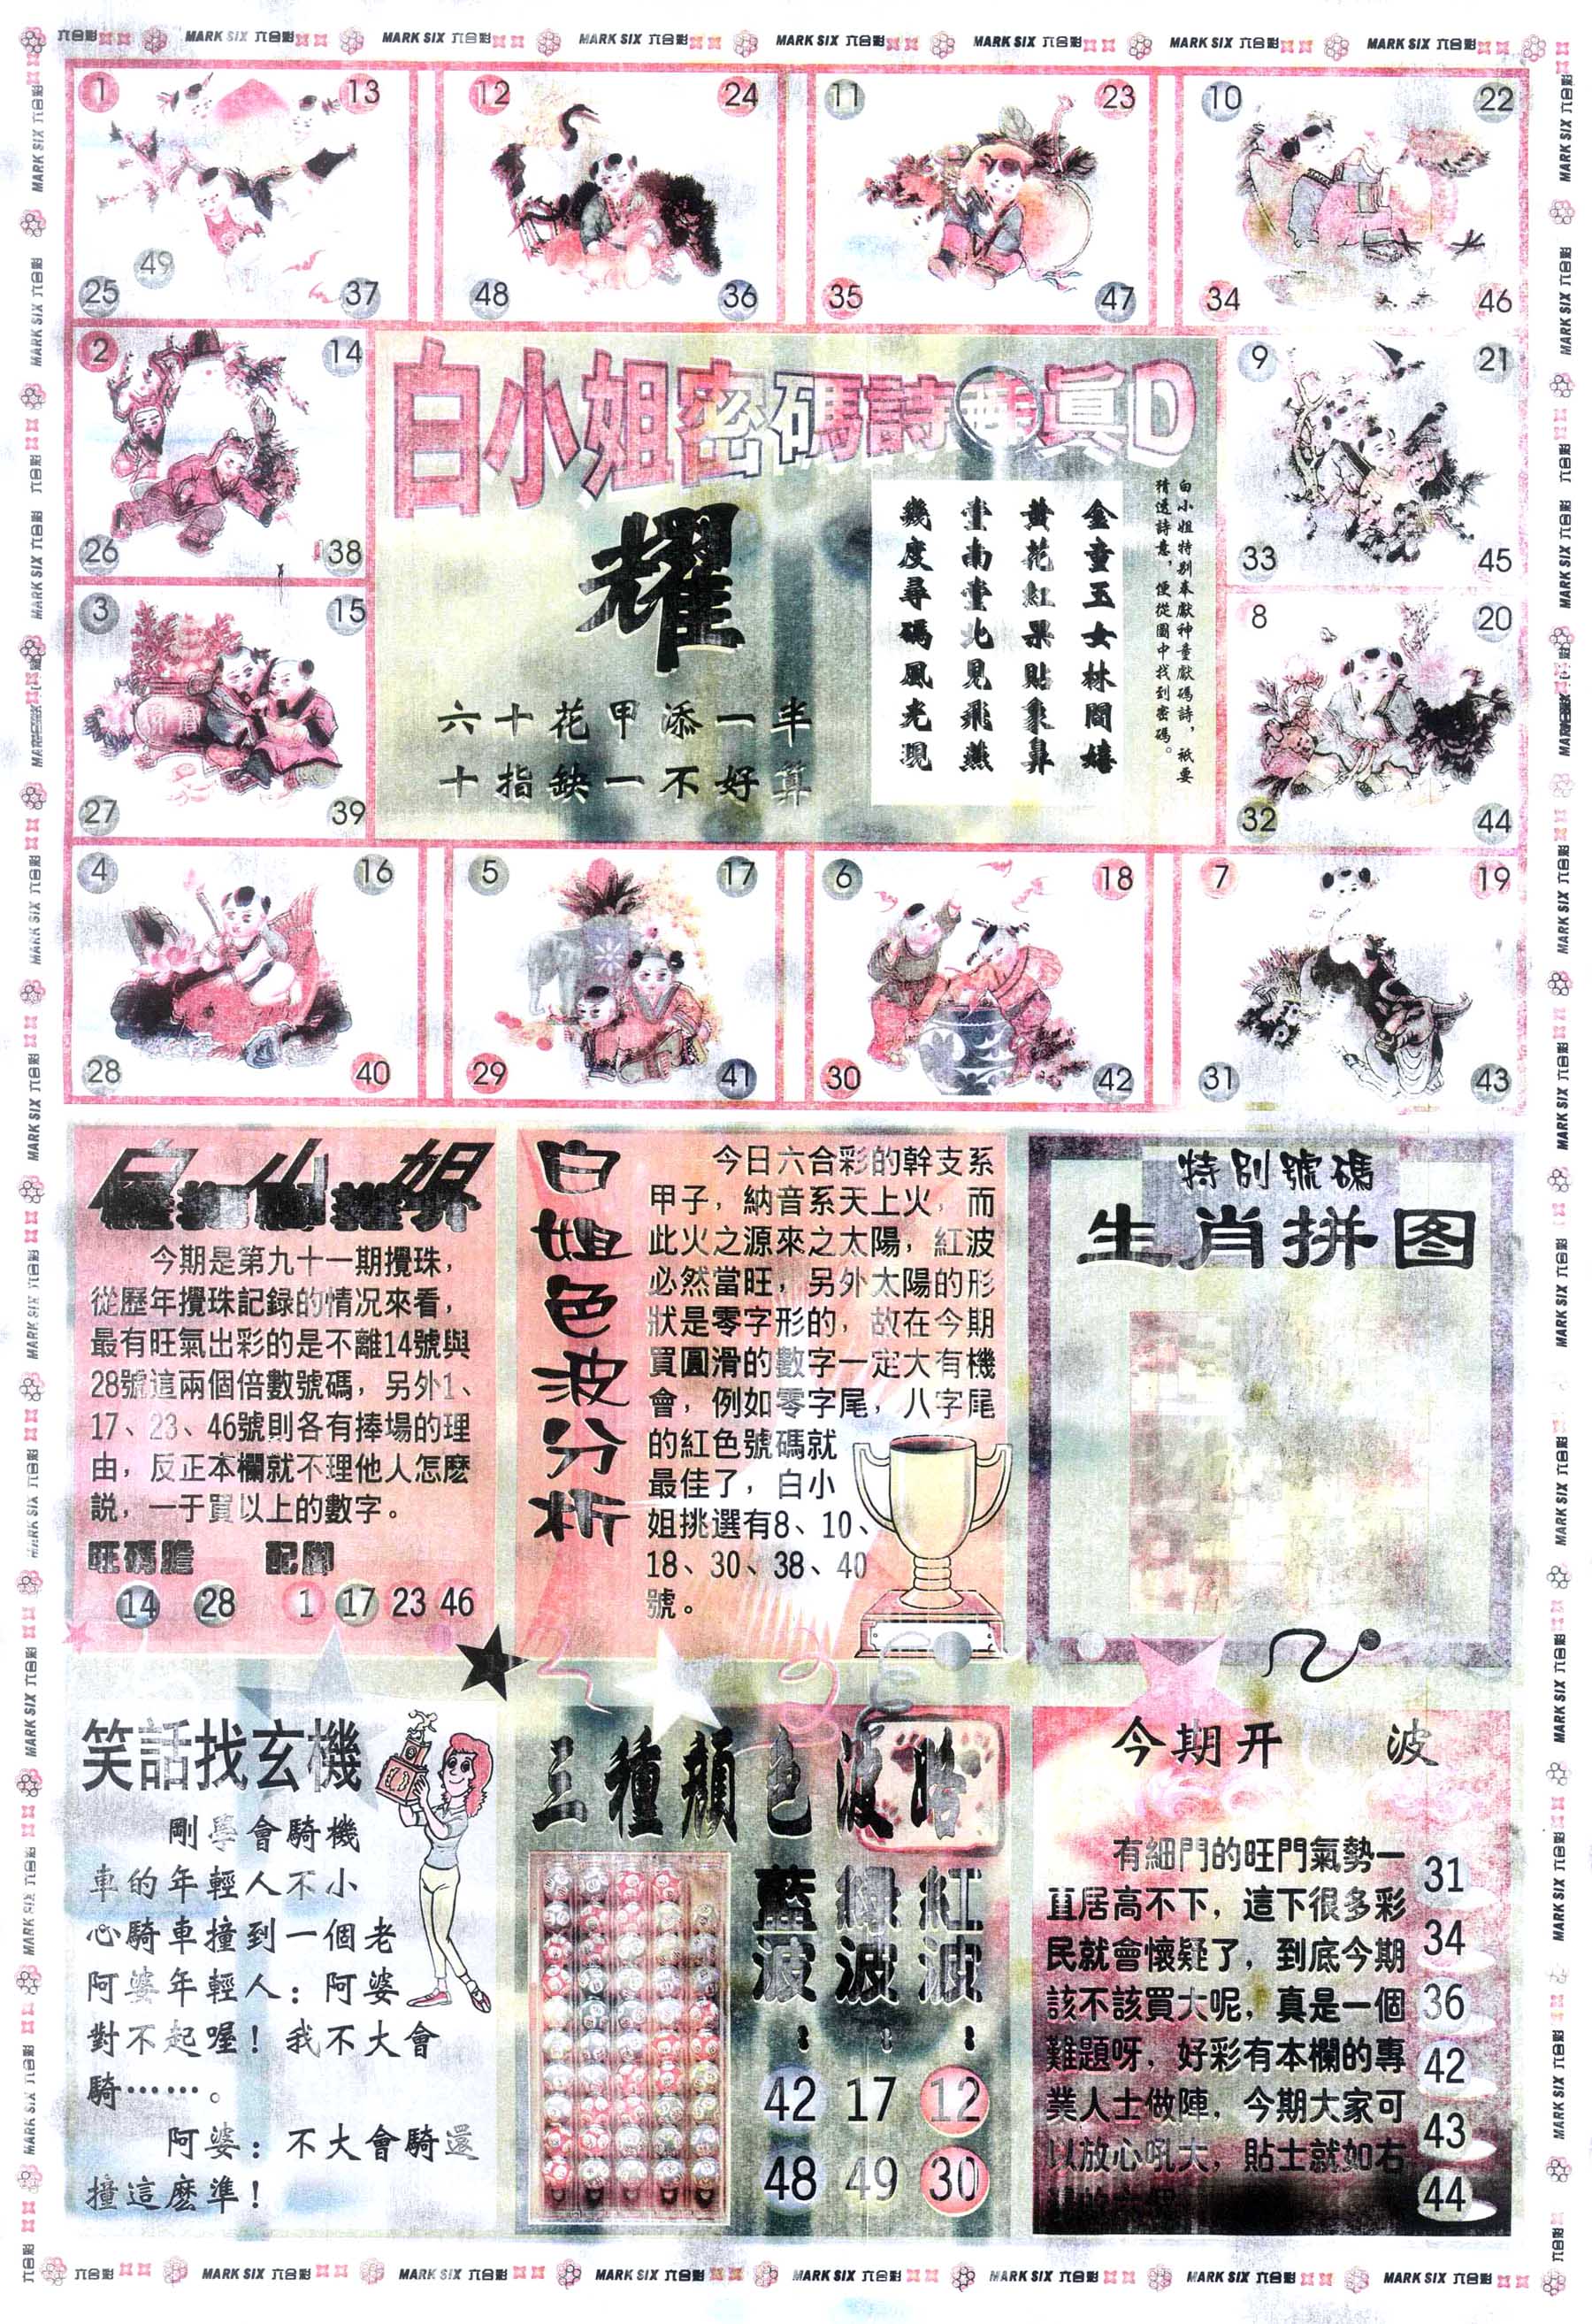 MARK SIX 六合彩
1
13
12
24
11
23
10
22
49
25
37
48
36
35
47
34
46
2
14
26
38
白小姐密碼詩
真D
耀
六十花甲添一半
十指缺一不好算
白小姐特別奉獻神童獻碼詩，祇要
猜透詩意，便從圖中找到密碼。
金童玉女林間嬉
黃花紅果貼象鼻
堂南堂北見飛燕
幾度尋碼風光現
9
21
33
45
3
15
27
39
8
20
32
44
4
16
28
40
5
17
29
41
6
18
30
42
7
19
31
43
白小姐
今期是第九十一期攪珠，
從歷年攪珠記録的情況來看，
最有旺氣出彩的是不離14號與
28號這兩個倍數號碼，另外1、
17、23、46號則各有捧場的理
由，反正本欄就不理他人怎麽
説，一于買以上的數字。
旺碼膽 配脚
14 28 1 17 23 46
白姐色波分析
今日六合彩的幹支系
甲子，納音系天上火，而
此火之源來之太陽，紅波
必然當旺，另外太陽的形
狀是零字形的，故在今期
買圓滑的數字一定大有機
會，例如零字尾，八字尾
的紅色號碼就
最佳了，白小
姐挑選有8、10、
18、30、38、40
號。
特別號碼
生肖拼图
笑話找玄機
剛學會騎機
車的年輕人不小
心騎車撞到一個老
阿婆年輕人：阿婆
對不起喔！我不大會
騎……。
阿婆：不大會騎還
撞這麽準！
三種顔色波路
紅波：
12
30
綠波：
17
49
藍波：
42
48
今期开 波
有細門的旺門氣勢一
直居高不下，這下很多彩
民就會懷疑了，到底今期
該不該買大呢，真是一個
難題呀，好彩有本欄的專
業人士做陣，今期大家可
以放心吼大，貼士就如右
31
34
36
42
43
44
MARK SIX 六合彩